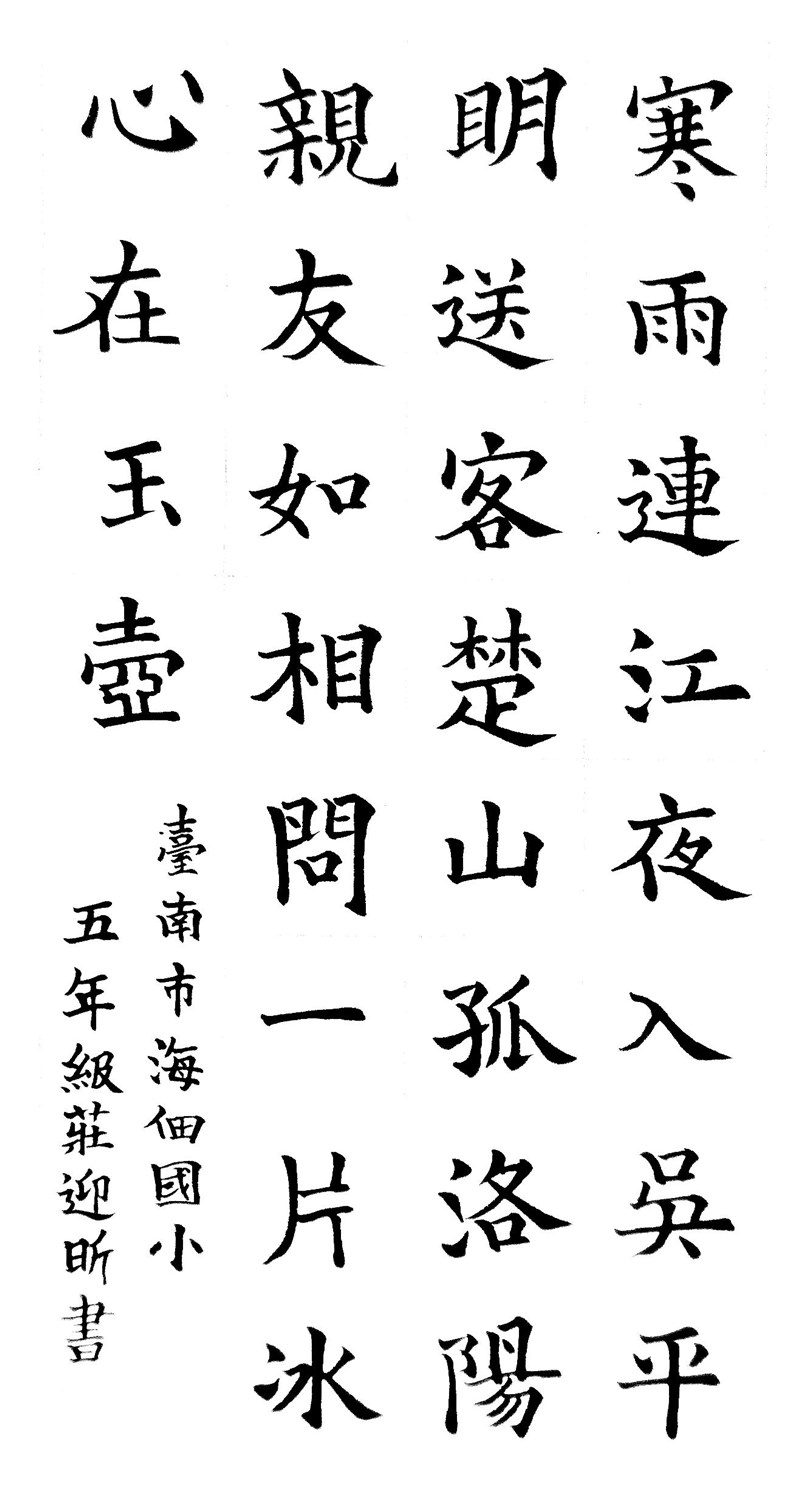 寒雨連江夜入吳平
明送客楚山孤洛陽
親友如相問一片冰
心在玉壺
臺南市海佃國小
五年級莊迎昕書